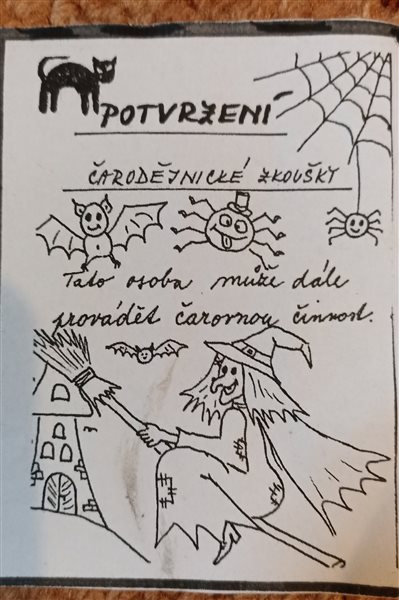 POTVRZENÍ
ČARODĚJNICKÉ ZKOUŠKY
Tato osoba může dále
provádět čarovnou činnost.